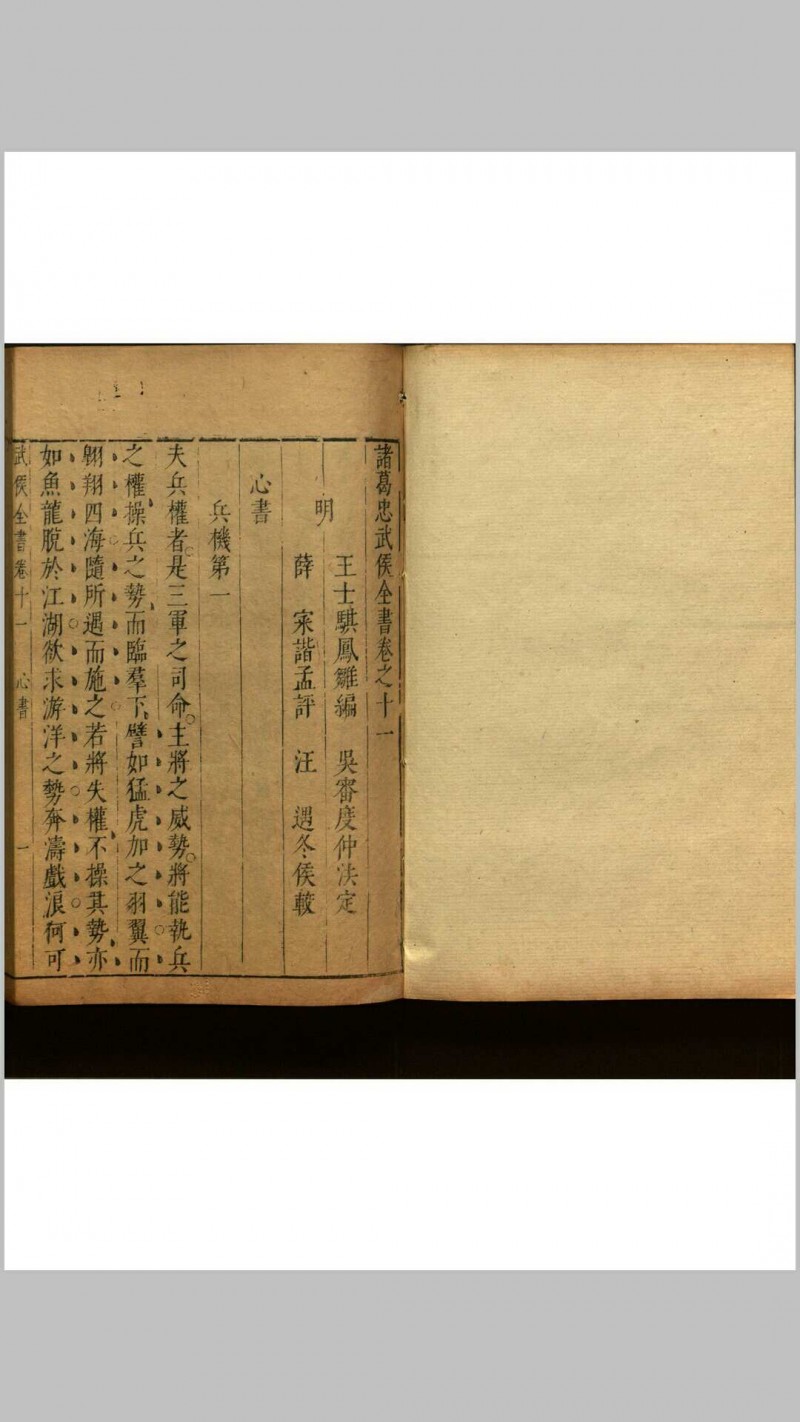 諸葛忠武侯全書卷之十一
明 王士騏鳳雛編 吳審度仲法定
薛 寀諧孟評 汪 遇冬侯較
心書
兵機第一
夫兵權者是三軍之司命主將之威勢將能執兵
之權操兵之勢而臨羣下譬如猛虎加之羽翼而
翱翔四海隨所遇而施之若將失權不操其勢亦
如魚龍脫於江湖欲求游洋之勢奔濤戲浪何可
武侯全書卷十一 心書 一